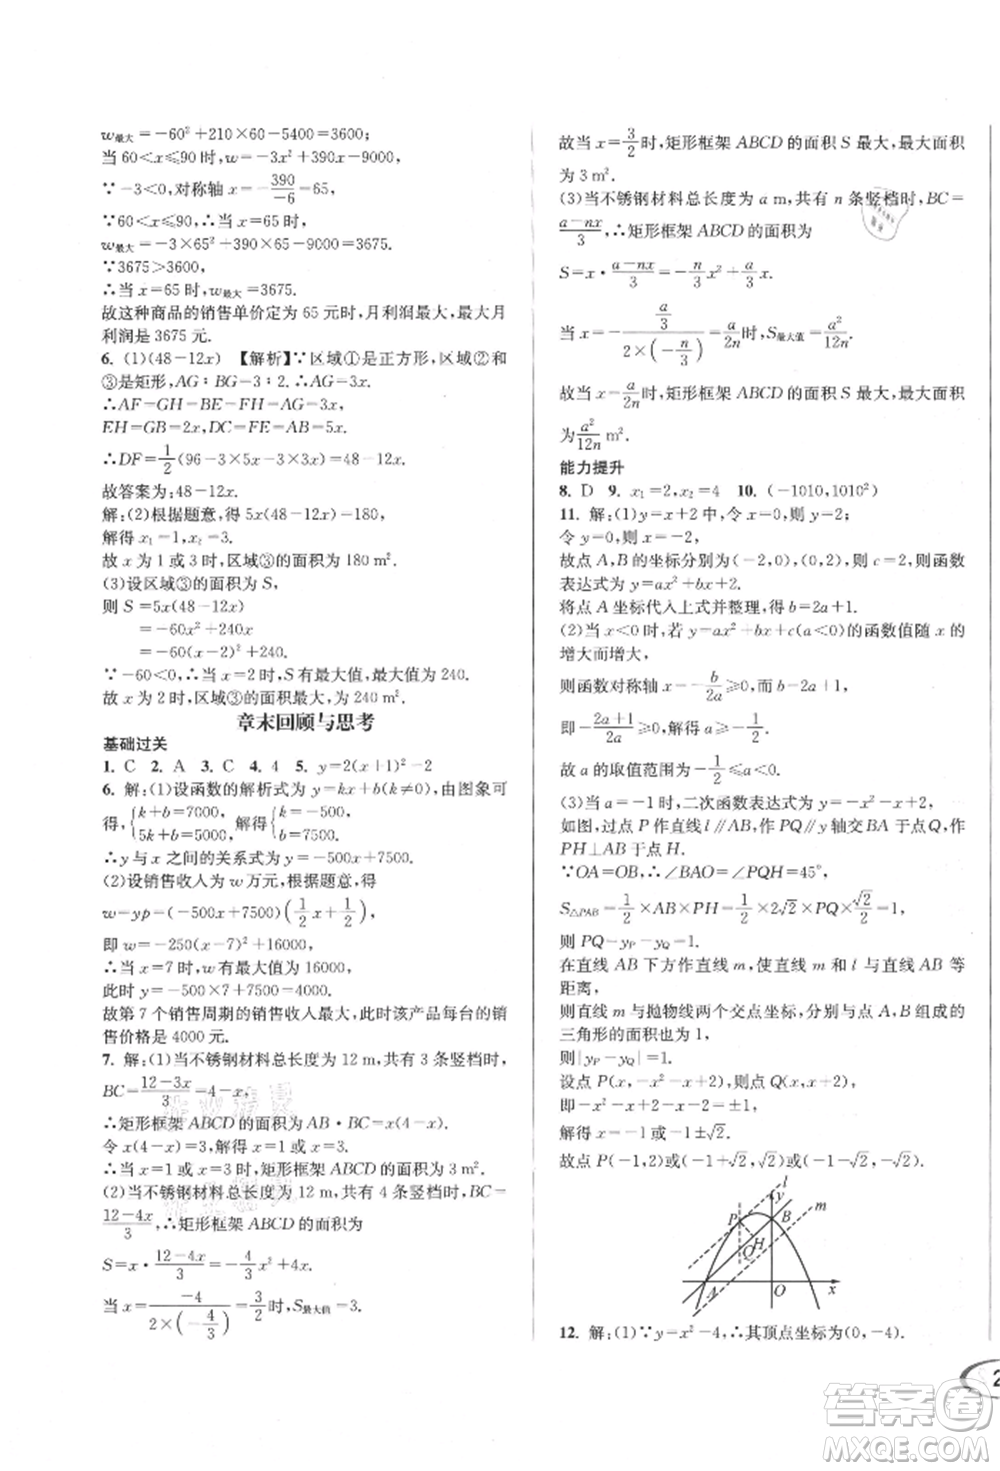 w最大=-60²+210×60-5400=3600;
当60<x≤90时,w=-3x²+390x-9000.
∵-3<0,对称轴x=-390/-6=65,
∵60<x≤90,∴当x=65时,
w最大=-3×65²+390×65-9000=3675.
∵3675>3600,
∴当x=65时,w最大=3675.
故这种商品的销售单价定为65元时,月利润最大,最大月
利润是3675元.
6. (1)(48-12x) 【解析】∵区域①是正方形,区域②和
③是矩形,AG∶BG=3∶2.
∴AF=GH=BE=FG=EH=3x,
EH=GB=2x,DC=FE=AB=5x,
∴DF=1/2(96-3×5x-3×3x)=48-12x.
故答案为:48-12x.
解:(2)根据题意,得5x(48-12x)=180,
解得x₁=1,x₂=3.
故x为1或3时,区域③的面积为180 m².
(3)设区域③的面积为S,
则S=5x(48-12x)
=-60x²+240x
=-60(x-2)²+240.
∵-60<0,∴当x=2时,S有最大值,最大值为240.
故x为2时,区域③的面积最大,为240 m².
章末回顾与思考
基础过关
1. C 2. A 3. C 4. 4 5. y=2(x+1)²-2
6. 解:(1)设函数的解析式为y=kx+b(k≠0),由图象可
得,{k+b=7000, 5k+b=5000, 解得{k=-500, b=7500.
∴y与x之间的关系式为y=-500x+7500.
(2)设销售收入为w万元,根据题意,得
w=yp=(-500x+7500)(1/2x+1/2),
即w=-250(x-7)²+16000,
∴当x=7时,w有最大值为16000,
此时y=-500×7+7500=4000.
故第7个销售周期的销售收入最大,此时该产品每台的销
售价格是4000元.
7. 解:(1)当不锈钢材料总长度为12 m,共有3条竖档时,
BC=12-3x/3=4-x,
∴矩形框架ABCD的面积为AB·BC=x(4-x).
令x(4-x)=3,解得x=1或3,
∴当x=1或x=3时,矩形框架ABCD的面积为3 m².
(2)当不锈钢材料总长度为12 m,共有4条竖档时,BC=
12-4x/3,∴矩形框架ABCD的面积为
S=x·12-4x/3=-4/3x²+4x.
当x=-4/2×(-4/3)=3/2时,S最大值=3.
故当x=3/2时,矩形框架ABCD的面积S最大,最大面积
为3 m².
(3)当不锈钢材料总长度为a m,共有n条竖档时,BC=
a-nx/3,∴矩形框架ABCD的面积为
S=x·a-nx/3=-n/3x²+a/3x.
当x=-a/3/2×(-n/3)=a/2n时,S最大值=a²/12n.
故当x=a/2n时,矩形框架ABCD的面积S最大,最大面积
为a²/12n m².
能力提升
8. D 9. x₁=2,x₂=4 10. (-1010,1010²)
11. 解:(1)y=x+2中,令x=0,则y=2;
令y=0,则x=-2,
故点A,B的坐标分别为(-2,0),(0,2),则c=2,则函数
表达式为y=ax²+bx+2.
将点A坐标代入上式并整理,得b=2a+1.
(2)当x<0时,若y=ax²+bx+c(a<0)的函数值随x的
增大而增大,
则函数对称轴x=-b/2a≥0,而b=2a+1,
即-2a+1/2a≥0,解得a≥-1/2,
故a的取值范围为-1/2≤a<0.
(3)当a=-1时,二次函数表达式为y=-x²-x+2,
如图,过点P作直线l∥AB,作PQ∥y轴交BA于点Q,作
PH⊥AB于点H.
∵OA=OB,∴∠BAO=∠PQH=45°,
S△PAB=1/2×AB×PH=1/2×2√2×PQ×√2/2=1,
则PQ=yP-yQ=1.
在直线AB下方作直线m,使直线m和l与直线AB等
距离,
则直线m与抛物线两个交点坐标,分别与点A,B组成的
三角形的面积也为1,
则|yP-yQ|=1.
设点P(x,-x²-x+2),则点Q(x,x+2),
即-x²-x+2-x-2=±1,
解得x=-1或-1±√2,
故点P(-1,2)或(-1+√2,√2)或(-1-√2,-√2).
l
y
P
B
m
H
Q
A
O
x
12. 解:(1)∵y=x²-4,∴其顶点坐标为(0,-4).
2
答案卷
MXQE.COM